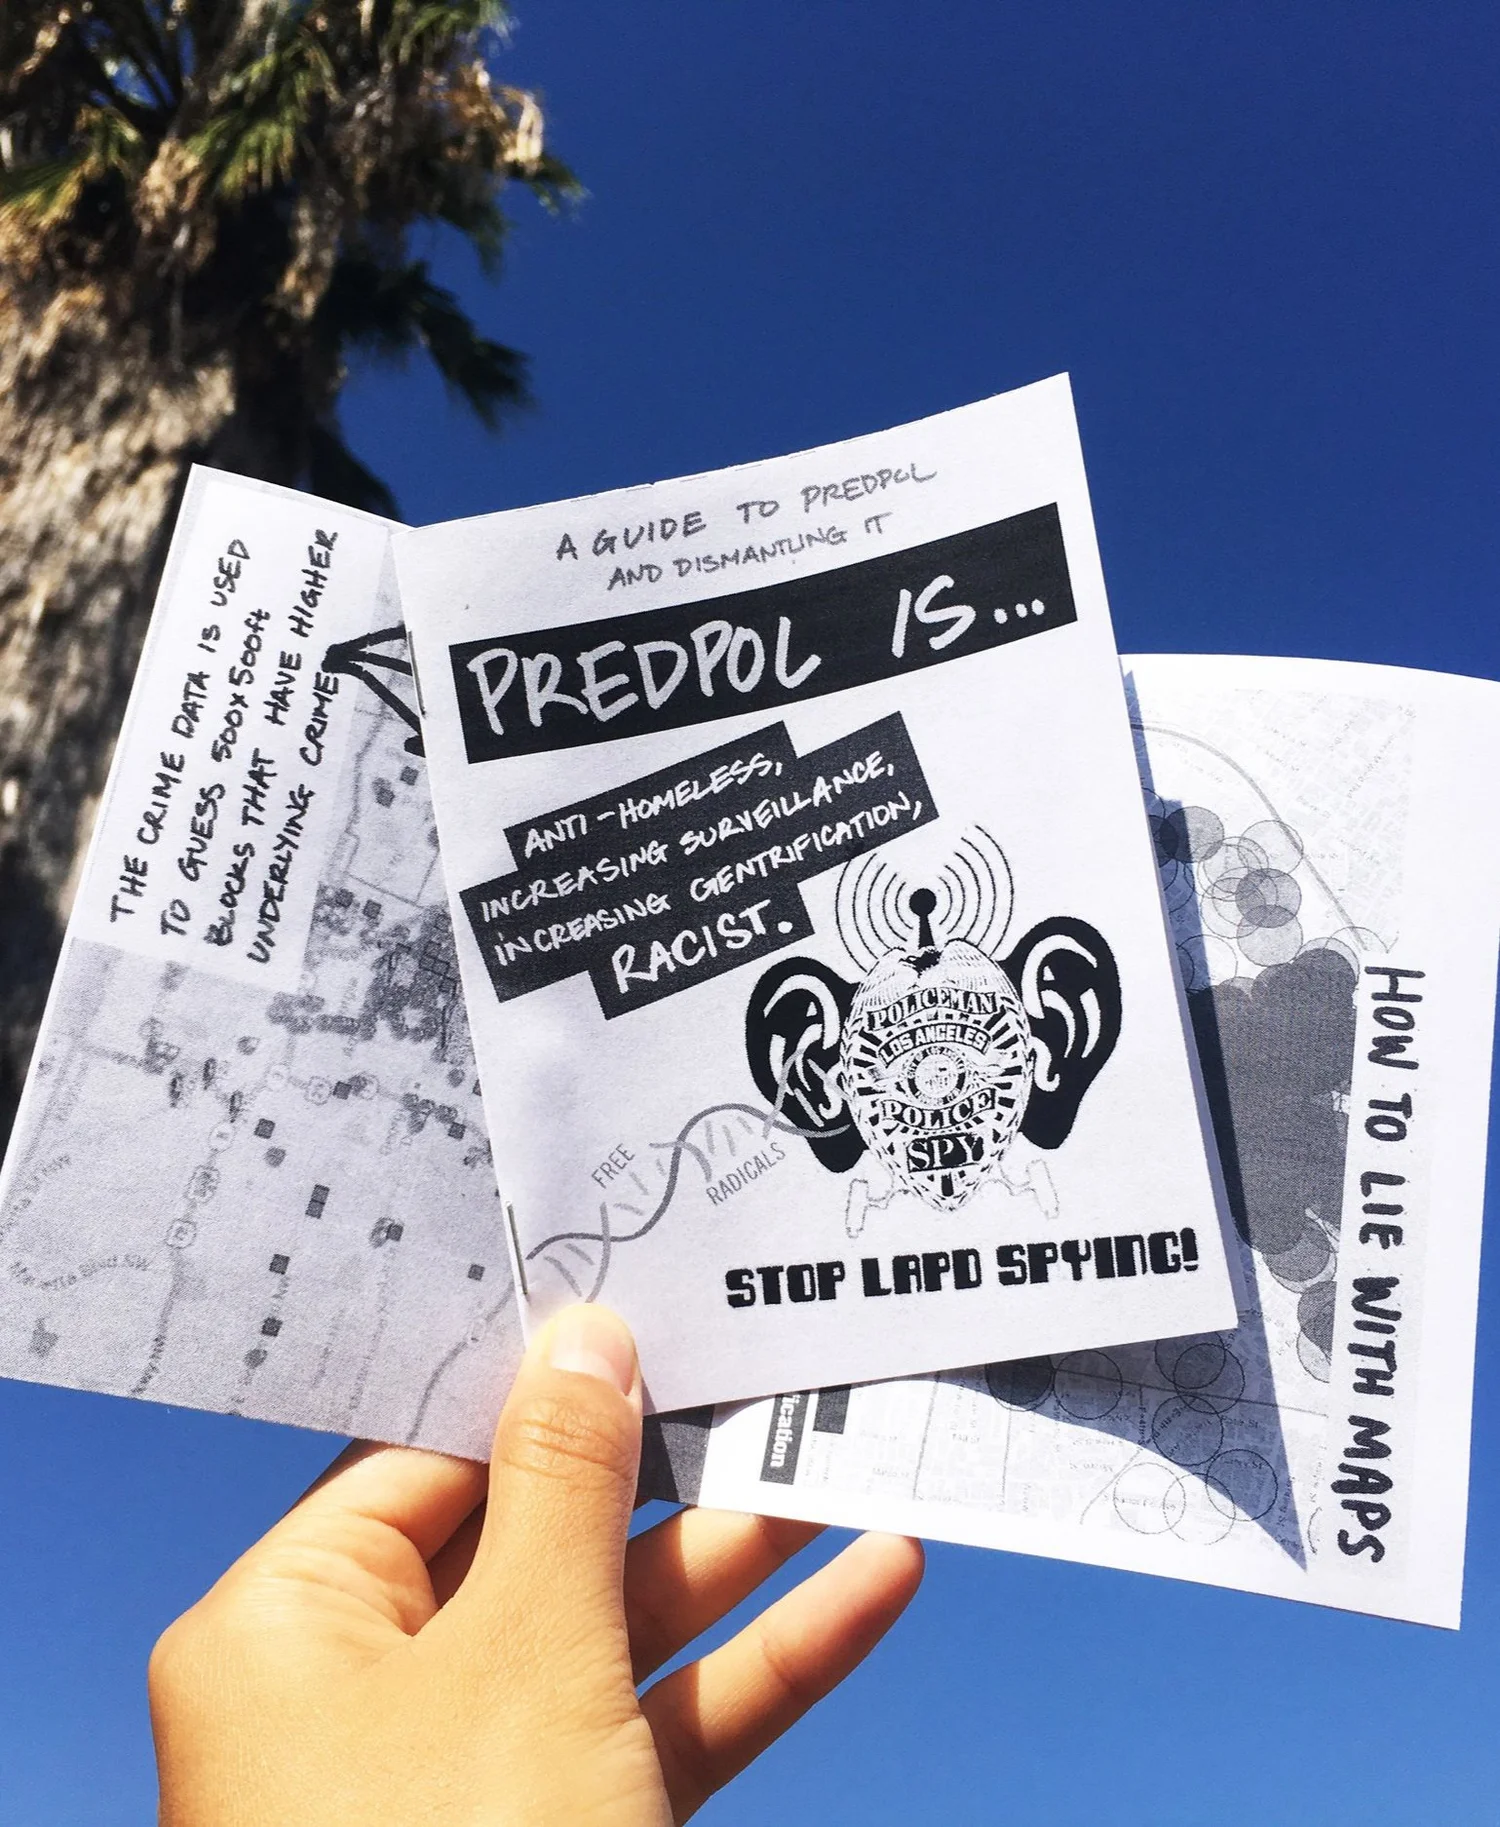 THE CRIME DATA IS USED
TO GUESS 500x500ft
BLOCKS THAT HAVE HIGHER
UNDERLYING CRIME
A GUIDE TO PREDPOL
AND DISMANTLING IT
PREDPOL IS...
ANTI-HOMELESS,
INCREASING SURVEILLANCE,
INCREASING GENTRIFICATION,
RACIST.
POLICEMAN
LOS ANGELES
POLICE
SPY
FREE
RADICALS
STOP LAPD SPYING!
HOW TO LIE WITH MAPS
ication